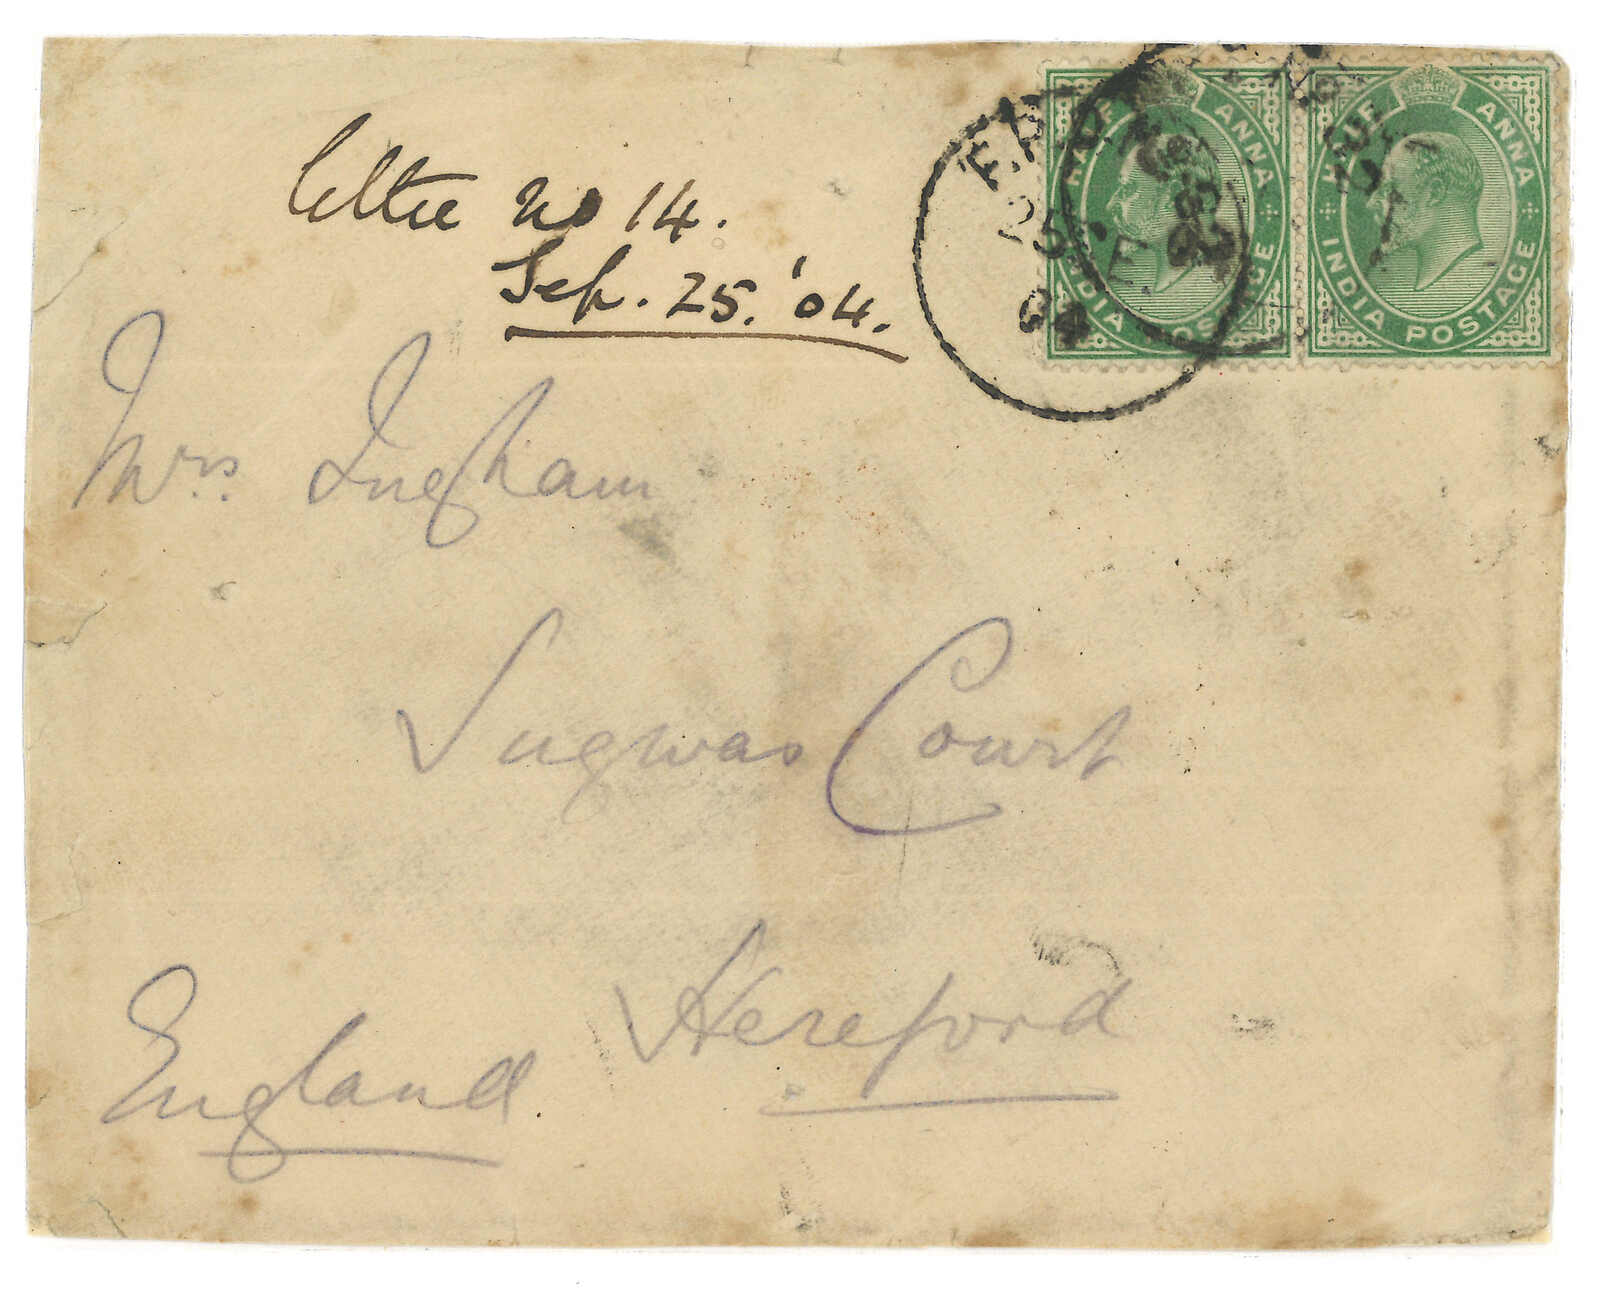 letter no 14.
Sep. 25. '04.
HALF ANNA
INDIA POSTAGE
HALF ANNA
INDIA POSTAGE
F.P.O. No
25 SE
04
Mrs. Ingham
Sugwas Court
Hereford
England.